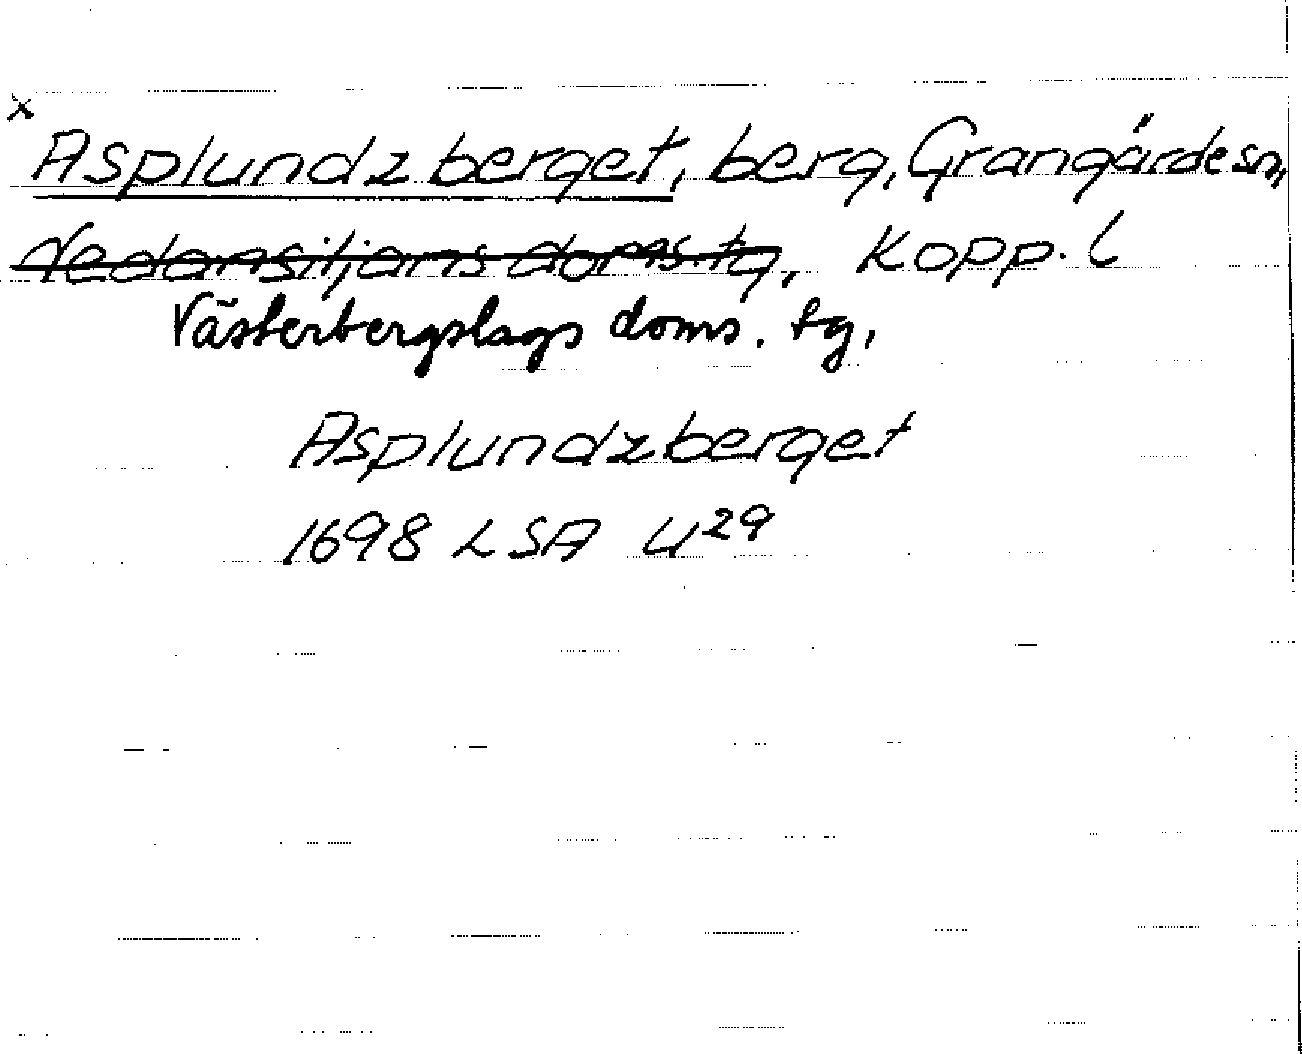 x
Asplundzberget, berg, Grangärde sn,
Nedansiljans doms.tg, Kopp. l
Västerbergslags doms. tg,
Asplundzberget
1698 LSA U29